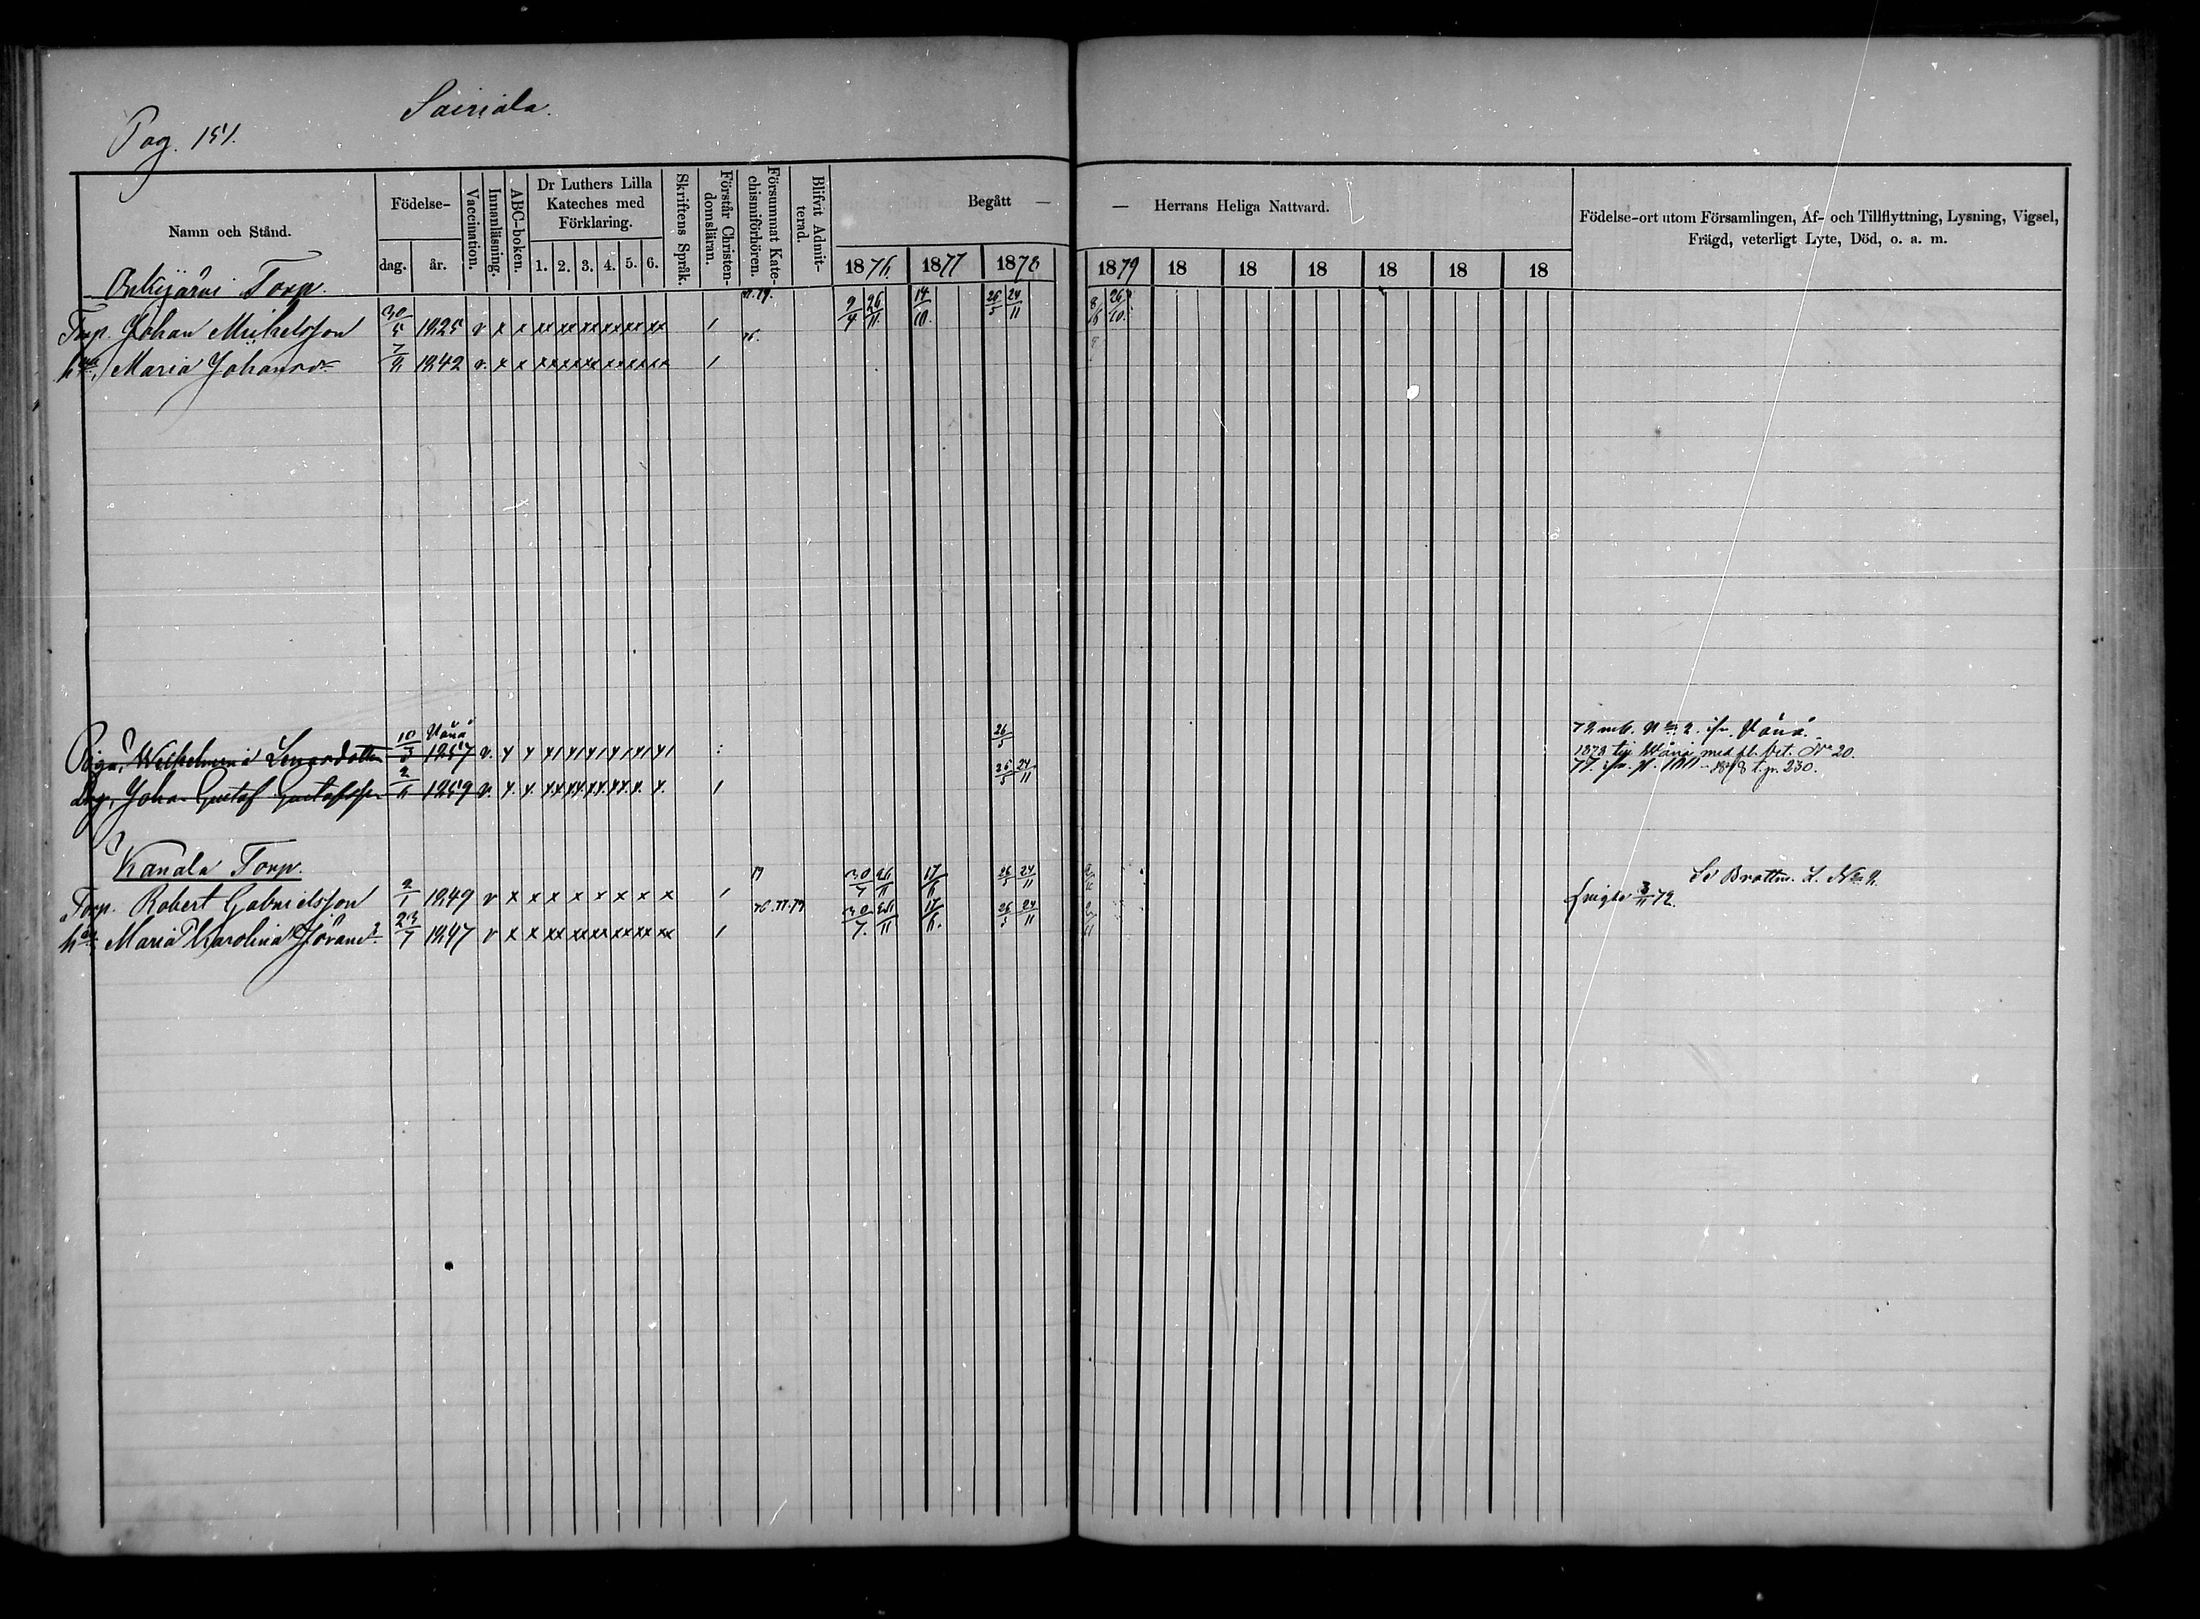 Sairiala.
Pag. 151.
Namn och Stånd.
Födelse-
dag. år.
Vaccination.
Innanläsning.
ABC-boken.
Dr Luthers Lilla
Kateches med
Förklaring.
1. 2. 3. 4. 5. 6.
Skriftens Språk.
Förstår Christen-
domsläran.
Försummat Kate-
chismiförhören.
Blifvit Admit-
terad.
Begått —
— Herrans Heliga Nattvard.
1876. 1877 1878 1879 18 18 18 18 18 18
Födelse-ort utom Församlingen, Af- och Tillflyttning, Lysning, Vigsel,
Frägd, veterligt Lyte, Död, o. a. m.
Torp.
Torp. Johan Michelsson 30/5 1825 v x x xx xx xx xx xx xx / 9/4 26/11 14/10. 26/5 24/11 26/10.
Maria Johansdr 1842 v. x x xx xx xx xx xx xx /
Piga, Wilhelmina Lenardotter 10/3 1857 v. 26/5
Vånå
1878 till Wånå med fl. bet. No 20.
Johan Gustaf Gustafsson 2/11 1859 v. / 26/5 24/11
1878 t. p. 230.
Kanala Torp.
Torp. Robert Gabrielsson 2/1 1849 v x x x x x x x x / 30/7 26/11 17/6 26/5 24/11
Maria Karolina Göransd. 23/7 1847 v x x xx xx xx xx xx xx / 30/7. 26/11 17/6. 26/5 24/11